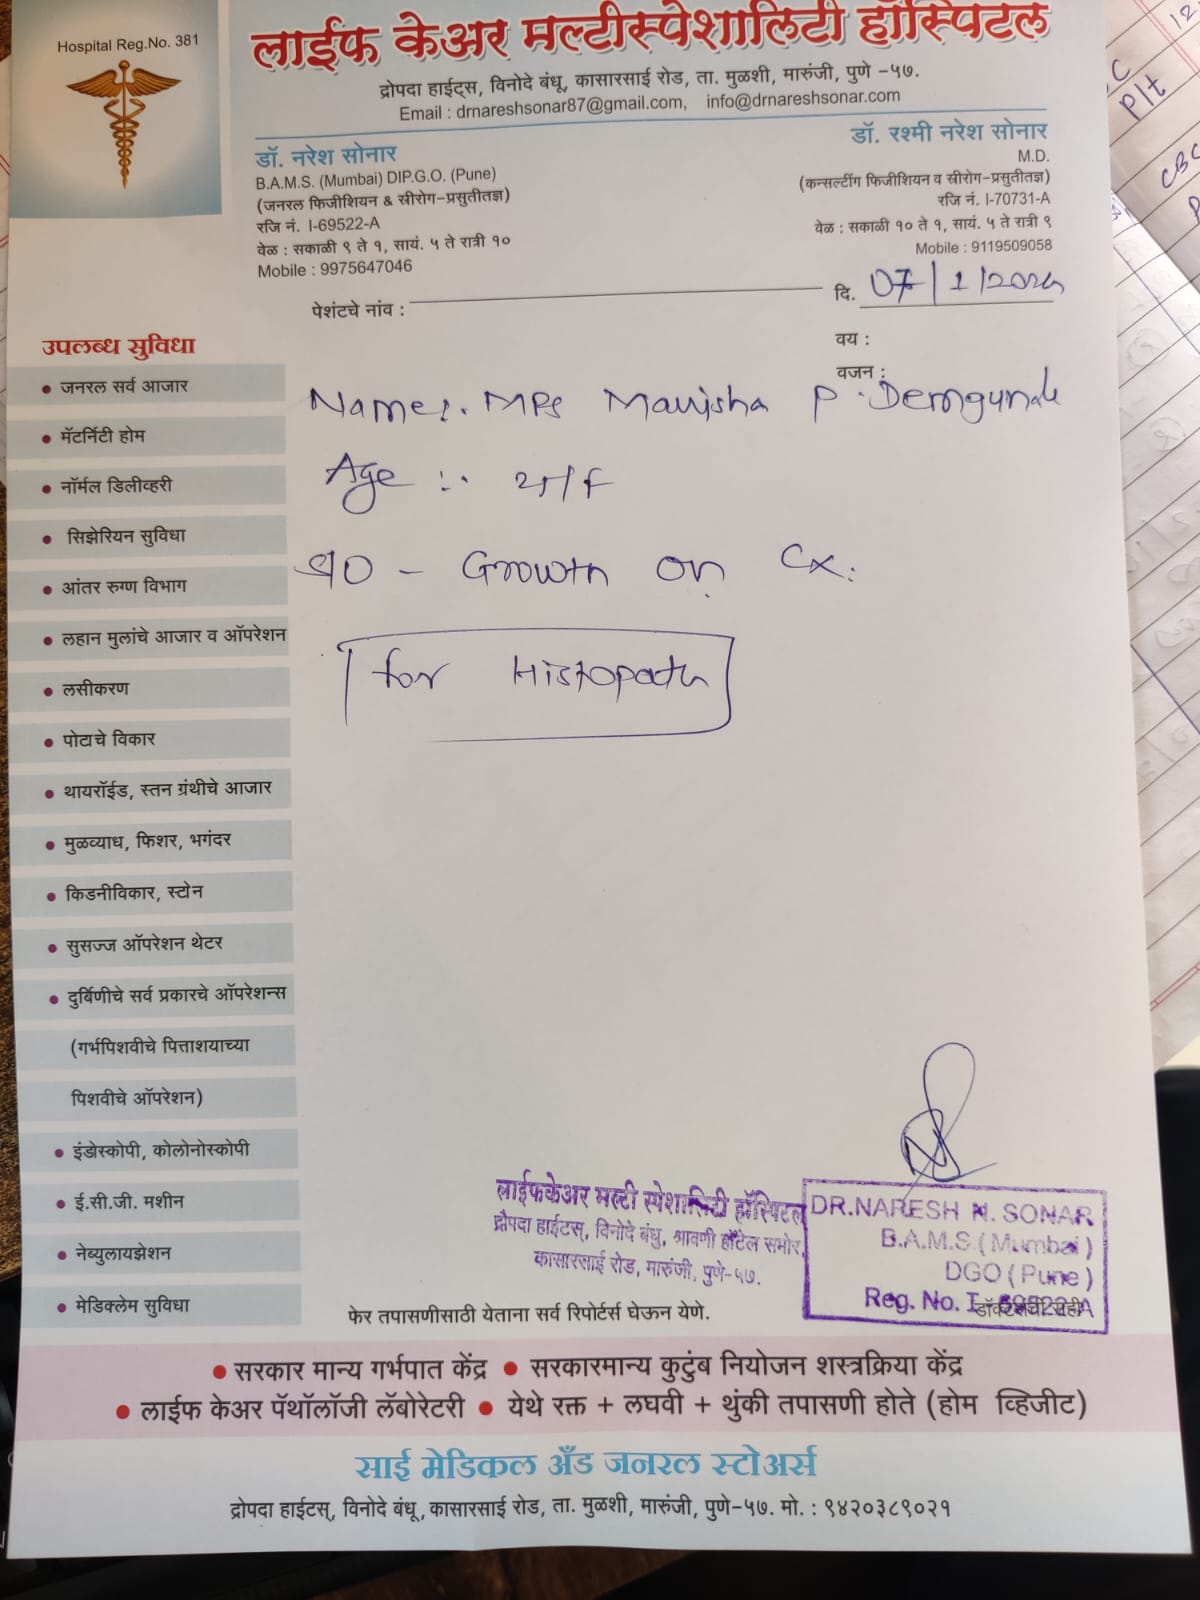 Hospital Reg.No. 381
लाईफ केअर मल्टीस्पेशालिटी हॉस्पिटल
द्रोपदा हाईट्स, विनोदे बंधू, कासारसाई रोड, ता. मुळशी, मारुंजी, पुणे -५७.
Email : drnareshsonar87@gmail.com, info@drnareshsonar.com
डॉ. नरेश सोनार
B.A.M.S. (Mumbai) DIP.G.O. (Pune)
(जनरल फिजीशियन & स्त्रीरोग-प्रसुतीतज्ञ)
रजि नं. I-69522-A
वेळ : सकाळी ९ ते १, सायं. ५ ते रात्री १०
Mobile : 9975647046
डॉ. रश्मी नरेश सोनार
M.D.
(कन्सल्टींग फिजीशियन व स्त्रीरोग-प्रसुतीतज्ञ)
रजि नं. I-70731-A
वेळ : सकाळी १० ते १, सायं. ५ ते रात्री ९
Mobile : 9119509058
पेशंटचे नांव :
दि. 07/1/2024
वय :
वजन :
Name:. Mrs Manisha P.
Age :-
Growth on Cx.
for Histopath
उपलब्ध सुविधा
जनरल सर्व आजार
मॅटर्निटी होम
नॉर्मल डिलीव्हरी
सिझेरियन सुविधा
आंतर रुग्ण विभाग
लहान मुलांचे आजार व ऑपरेशन
लसीकरण
पोटाचे विकार
थायरॉईड, स्तन ग्रंथीचे आजार
मुळव्याध, फिशर, भगंदर
किडनीविकार, स्टोन
सुसज्ज ऑपरेशन थेटर
दुर्बिणीचे सर्व प्रकारचे ऑपरेशन्स
(गर्भपिशवीचे पित्ताशयाच्या
पिशवीचे ऑपरेशन)
इंडोस्कोपी, कोलोनोस्कोपी
ई.सी.जी. मशीन
नेब्युलायझेशन
मेडिक्लेम सुविधा
लाईफकेअर मल्टी स्पेशालिटी हॉस्पिटल
द्रौपदा हाईटस्, विनोदे बंधु, श्रावणी हॉटेल समोर,
कासारसाई रोड, मारुंजी, पुणे-५७.
DR.NARESH N. SONAR
B.A.M.S (Mumbai)
DGO (Pune)
Reg. No. I-69522-A
फेर तपासणीसाठी येताना सर्व रिपोर्टर्स घेऊन येणे.
सरकार मान्य गर्भपात केंद्र ● सरकारमान्य कुटुंब नियोजन शस्त्रक्रिया केंद्र
लाईफ केअर पॅथॉलॉजी लॅबोरेटरी ● येथे रक्त + लघवी + थुंकी तपासणी होते (होम व्हिजीट)
साई मेडिकल अँड जनरल स्टोअर्स
द्रोपदा हाईटस्, विनोदे बंधू, कासारसाई रोड, ता. मुळशी, मारुंजी, पुणे-५७. मो. : ९४२०३८९०२१
P/t
CBC